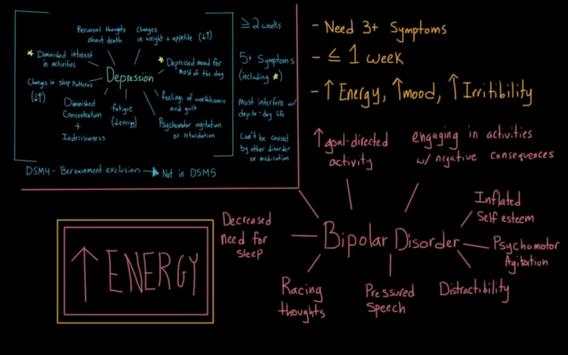 Recurrent thoughts
about death
Changes
in weight + appetite (↓↑)
* Diminished interest
in activities
* Depressed mood for
most of the day
Depression
Changes in sleep patterns
(↓↑)
Diminished
Concentration
+
Indecisiveness
fatigue
(↓energy)
feelings of worthlessness
and guilt
Psychomotor agitation
or retardation
≥ 2 weeks
5+ Symptoms
(including *)
Must interfere w/
day-to-day life
Can't be caused
by other disorder
or medication
DSM4 - Bereavement exclusion → Not in DSM5
- Need 3+ Symptoms
- ≤ 1 week
- ↑ Energy, ↑mood, ↑ Irritibility
↑ goal-directed
activity
engaging in activities
w/ negative consequences
Inflated
Self esteem
Decreased
need for
sleep
Bipolar Disorder
Psychomotor
Agitation
Racing
thoughts
Pressured
Speech
Distractibility
↑ ENERGY